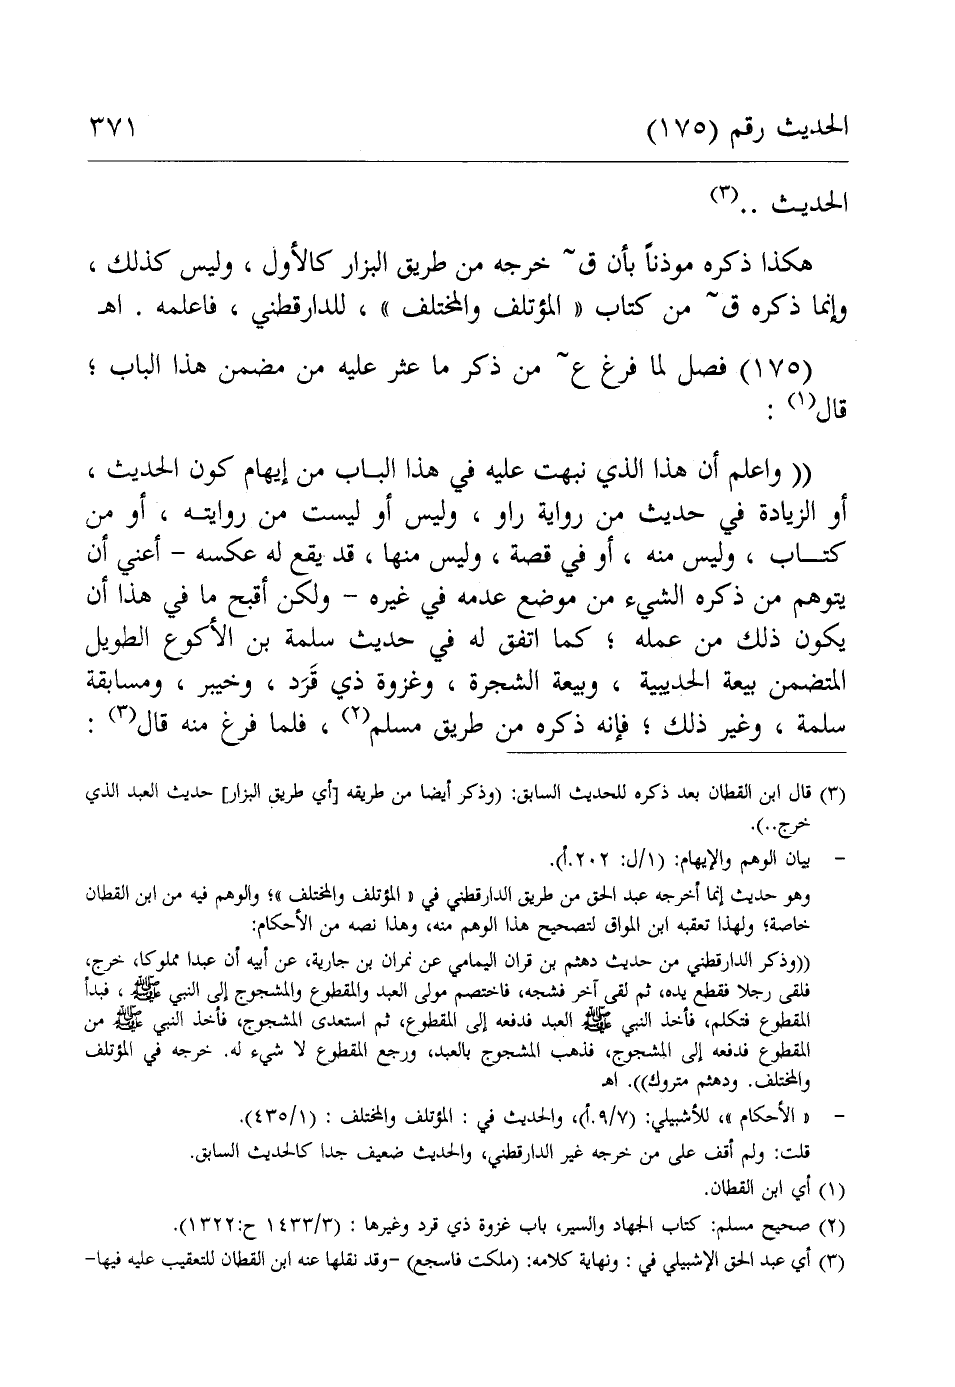 الحديث رقم (١٧٥) ٣٧١
الحديث ..(٣)
هكذا ذكره موذناً بأن ق~ خرجه من طريق البزار كالأول ، وليس كذلك ،
وإنما ذكره ق~ من كتاب « المؤتلف والمختلف » ، للدارقطني ، فاعلمه . اهـ
(١٧٥) فصل لما فرغ ع~ من ذكر ما عثر عليه من مضمن هذا الباب ؛
قال(١) :
(( واعلم أن هذا الذي نبهت عليه في هذا البـاب من إيهام كون الحديث ،
أو الزيادة في حديث من رواية راو ، وليس أو ليست من روايتـه ، أو من
كتـــاب ، وليس منه ، أو في قصة ، وليس منها ، قد يقع له عكسه – أعني أن
يتوهم من ذكره الشيء من موضع عدمه في غيره – ولكن أقبح ما في هذا أن
يكون ذلك من عمله ؛ كما اتفق له في حديث سلمة بن الأكوع الطويل
المتضمن بيعة الحديبية ، وبيعة الشجرة ، وغزوة ذي قَرَد ، وخيبر ، ومسابقة
سلمة ، وغير ذلك ؛ فإنه ذكره من طريق مسلم(٢) ، فلما فرغ منه قال(٣) :
(٣) قال ابن القطان بعد ذكره للحديث السابق: (وذكر أيضا من طريقه [أي طريق البزار] حديث العبد الذي
خرج..).
– بيان الوهم والإيهام: (١/ل: ٢٠٢.أ).
وهو حديث إنما أخرجه عبد الحق من طريق الدارقطني في « المؤتلف والمختلف »؛ والوهم فيه من ابن القطان
خاصة؛ ولهذا تعقبه ابن المواق لتصحيح هذا الوهم منه، وهذا نصه من الأحكام:
((وذكر الدارقطني من حديث دهثم بن قران اليمامي عن نمران بن جارية، عن أبيه أن عبدا مملوكا، خرج،
فلقى رجلا فقطع يده، ثم لقى آخر فشجه، فاختصم مولى العبد والمقطوع والمشجوج إلى النبي ﷺ ، فبدأ
المقطوع فتكلم، فأخذ النبي ﷺ العبد فدفعه إلى المقطوع، ثم استعدى المشجوج، فأخذ النبي ﷺ من
المقطوع فدفعه إلى المشجوج، فذهب المشجوج بالعبد، ورجع المقطوع لا شيء له. خرجه في المؤتلف
والمختلف. ودهثم متروك)). اهـ
– « الأحكام »، للأشبيلي: (٩/٧.أ)، والحديث في : المؤتلف والمختلف : (٤٣٥/١).
قلت: ولم أقف على من خرجه غير الدارقطني، والحديث ضعيف جدا كالحديث السابق.
(١) أي ابن القطان.
(٢) صحيح مسلم: كتاب الجهاد والسير، باب غزوة ذي قرد وغيرها : (١٤٣٣/٣ ح:١٣٢٢).
(٣) أي عبد الحق الإشبيلي في : ونهاية كلامه: (ملكت فاسجع) –وقد نقلها عنه ابن القطان للتعقيب عليه فيها–